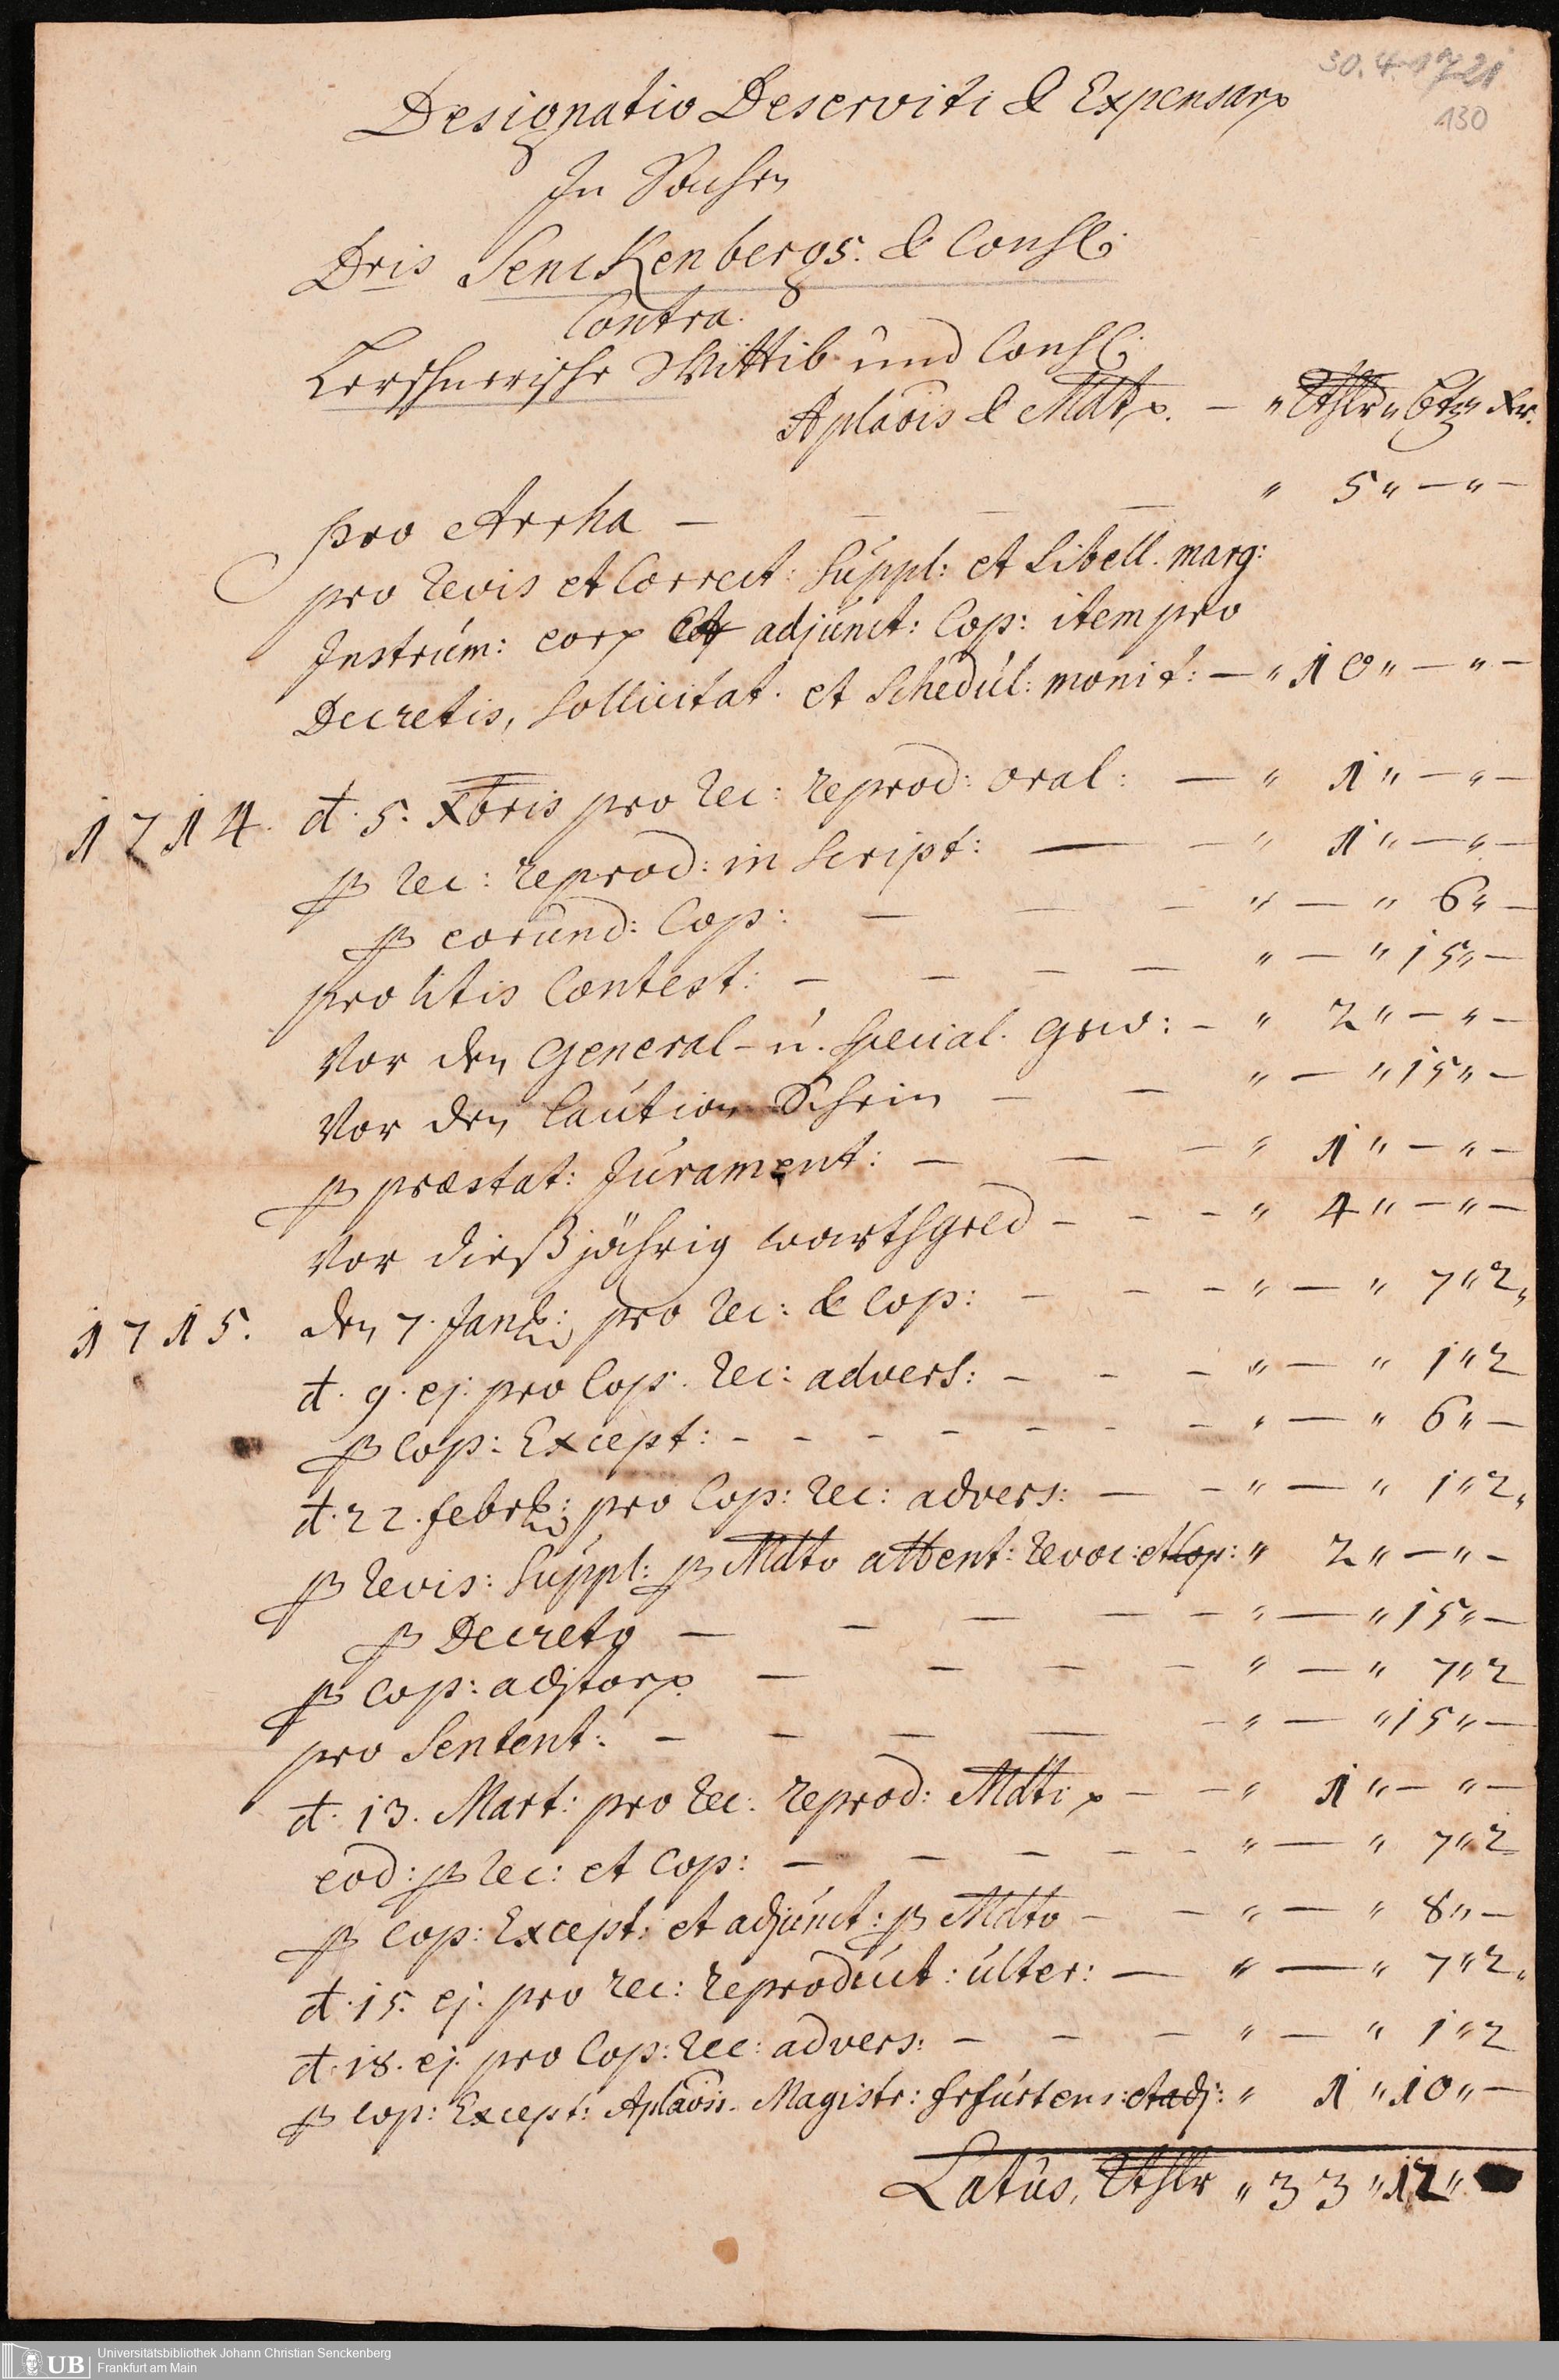 30.4.1721
130
Designatio Deserviti & Expensarp
In Sachen
Dris Senckenbergs. & Cons:
Contra.
Lerschnerische Wittib und Cons:
Aplaõis & Mdtp. — " Rthlr " btz " Xr.
pro Arrha — — — — " 5 " — " —
pro revis et Correct: Suppl: et Libell. marg:
Instrum: eorp et adjunct: Cop: item pro
Decretis, Sollicitat. et Schedul: monit: — " 10 " — " —
1714. d. 5. Xbris pro rec: reprod: oral: — " 1 " — " —
p rec: reprod: in Script: — — " 1 " — " —
p eorund: Cop: — — — " — " 6 " —
pro litis Contest: — — — — " — " 15 " —
Vor den General- u. Special. gew: — " 2 " — " —
Vor den Caution Schein — — " — " 15 " —
p præstat: Jurament: — — — " 1 " — " —
Vor dieß jährig warthgeld — — — " 4 " — " —
1715. den 7. Jan: pro rec: & Cop: — — — " — " 7 " 2 "
d. 9. ej. pro Cop. rec: advers: — — — " — " 1 " 2
p Cop: Except: — — — — — — — " — " 6 " —
d. 22. febr: pro Cop: rec: advers: — — " — " 1 " 2 "
p revis: Suppl: p Mdto attent: revoc: et Cop: " 2 " — " —
p Decreto — — — — — " — " 15 " —
p Cop: adjtorp — — — — " — " 7 " 2
pro Sentent: — — — — — " — " 15 " —
d. 13. Mart: pro rec: reprod: Mdti p — — " 1 " — " —
eod: p rec: et Cop: — — — — — " — " 7 " 2
p Cop: Except: et adjunct: p Mdto — — " — " 8 " —
d. 15. ej. pro rec: reproduct: ulter: — " — " 7 " 2 "
d. 18. ej. pro Cop: rec: advers: — — — " — " 1 " 2
p Cop: Except: Aplaõis. Magistr: Erfurtens: et adj: " 1 " 10 " —
Latus, Rthlr " 33 " 12 "
UB Universitätsbibliothek Johann Christian Senckenberg
Frankfurt am Main